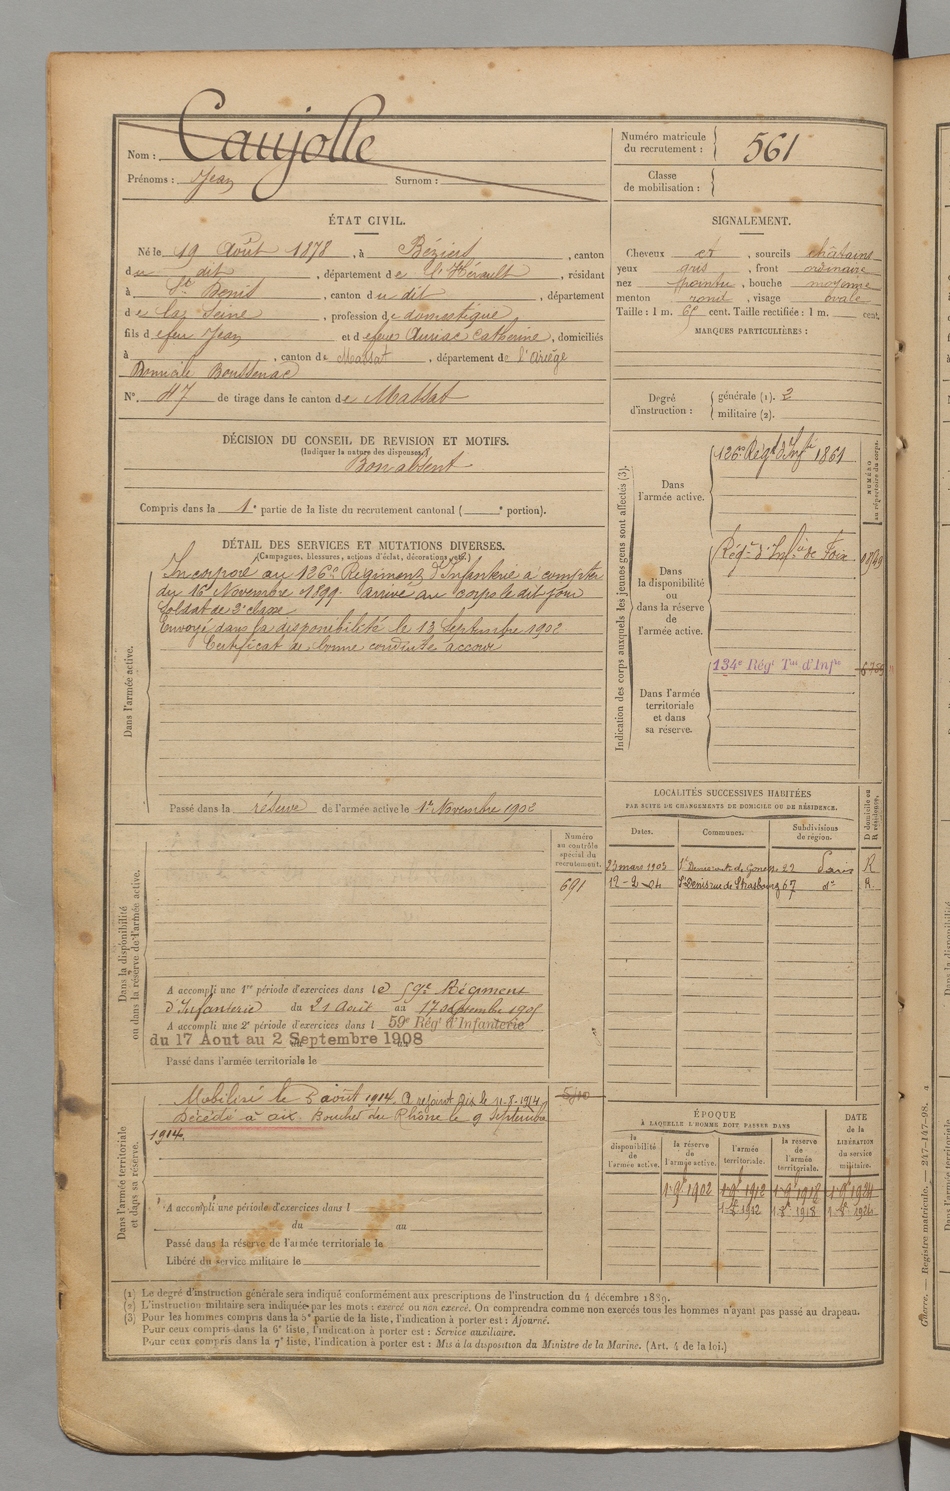 Nom : Caujolle
Prénoms : Jean Surnom :
Numéro matricule du recrutement : 561
Classe de mobilisation :
ÉTAT CIVIL.
Né le 19 Août 1878, à Béziers, canton
du dit, département de l'Hérault, résidant
à St Denis, canton du dit, département
de la Seine, profession de domestique,
fils d efeu Jean et d efeu Auriac Catherine, domiciliés
à , canton de Massat, département de l'Ariège
Boussenac
N°. 47 de tirage dans le canton de Massat
SIGNALEMENT.
Cheveux et, sourcils châtains
yeux gris, front ordinaire
nez pointu, bouche moyenne
menton rond, visage ovale
Taille : 1 m. 65 cent. Taille rectifiée : 1 m. cent.
MARQUES PARTICULIÈRES :
Degré d'instruction : générale (1). 2
militaire (2).
DÉCISION DU CONSEIL DE REVISION ET MOTIFS.
(Indiquer la nature des dispenses.)
Bon absent
Compris dans la 1e partie de la liste du recrutement cantonal ( e portion).
DÉTAIL DES SERVICES ET MUTATIONS DIVERSES.
(Campagnes, blessures, actions d'éclat, décorations, etc.)
Dans l'armée active.
Incorporé au 126e Régiment d'Infanterie à compter
du 16 Novembre 1899. arrivé au corps le dit jour
Soldat de 2e classe
Envoyé dans la disponibilité le 13 Septembre 1902
Certificat de bonne conduite accordé
Passé dans la réserve de l'armée active le 1er Novembre 1902
Indication des corps auxquels les jeunes gens sont affectés (3).
NUMÉRO au répertoire du corps.
Dans l'armée active.
126e Régt d'Infie 1861
Dans la disponibilité ou dans la réserve de l'armée active.
Régt d'Infie de Foix
Dans l'armée territoriale et dans sa réserve.
134e Régt Tal d'Infie
LOCALITÉS SUCCESSIVES HABITÉES
PAR SUITE DE CHANGEMENTS DE DOMICILE OU DE RÉSIDENCE.
Dates. Communes. Subdivisions de région. D domicile ou R résidence.
23 mars 1903 St Denis route de Gonesse 22 Paris R
12-2-04 St Denis rue de Strasbourg 67 do R.
Dans la disponibilité ou dans la réserve de l'armée active.
Numéro au contrôle spécial du recrutement.
691
A accompli une 1re période d'exercices dans le 59e Régiment
d'Infanterie du 21 Août au 17 septembre 1905
A accompli une 2e période d'exercices dans l 59e Régt d'Infanterie
du 17 Aout au 2 Septembre 1908
Passé dans l'armée territoriale le
Dans l'armée territoriale et dans sa réserve.
Mobilisé le 3 août 1914. A rejoint Aix le 11-8-1914
Décédé à Aix Bouches du Rhône le 9 Septembre
1914.
A accompli une période d'exercices dans l
du au
Passé dans la réserve de l'armée territoriale le
Libéré du service militaire le
ÉPOQUE
À LAQUELLE L'HOMME DOIT PASSER DANS
la disponibilité de l'armée active. la réserve de l'armée active. l'armée territoriale. la réserve de l'armée territoriale. DATE de la LIBÉRATION du service militaire.
1 9bre 1902 1 9bre 1912 1 9bre 1918 1 9bre 1924
1 8bre 1912 1 8bre 1918 1 8bre 1924
(1) Le degré d'instruction générale sera indiqué conformément aux prescriptions de l'instruction du 4 décembre 1889.
(2) L'instruction militaire sera indiquée par les mots : exercé ou non exercé. On comprendra comme non exercés tous les hommes n'ayant pas passé au drapeau.
(3) Pour les hommes compris dans la 5e partie de la liste, l'indication à porter est : Ajourné.
Pour ceux compris dans la 6e liste, l'indication à porter est : Service auxiliaire.
Pour ceux compris dans la 7e liste, l'indication à porter est : Mis à la disposition du Ministre de la Marine. (Art. 4 de la loi.)
Guerre. — Registre matricule. — 247-147-98.